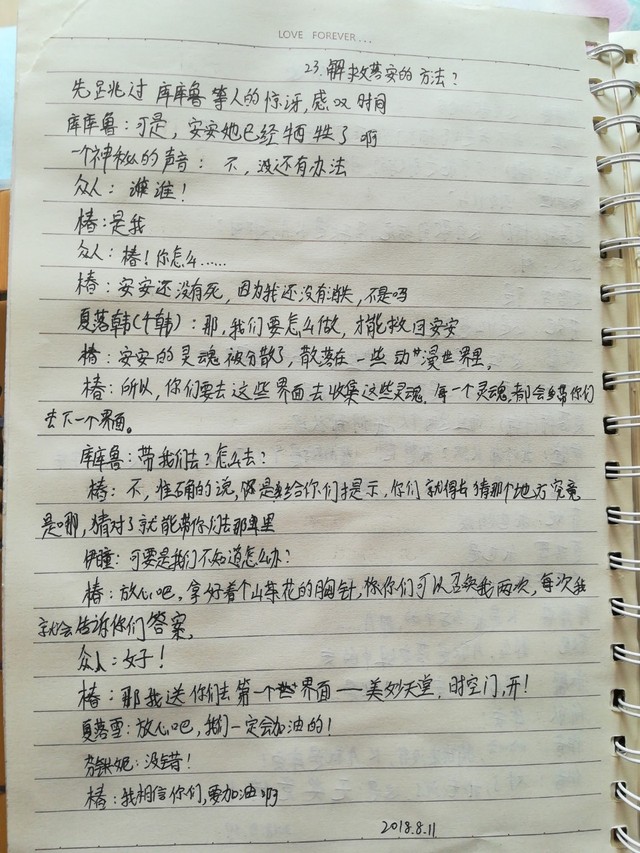 LOVE FOREVER...
23.解救落安的方法?
先跳过 库库鲁等人的惊讶,感叹时间
库库鲁:可是,安安她已经牺牲了啊
一个神秘的声音:不,没还有办法
众人:谁谁!
椿:是我
众人:椿!你怎么……
椿:安安还没有死,因为我还没有消失,不是吗
夏落韩(千韩):那,我们要怎么做,才能救回安安
椿:安安的灵魂被分散了,散落在一些动漫世界里,
椿:所以,你们要去这些界面去收集这些灵魂.每一个灵魂,都会带你们
去下一个界面。
库库鲁:带我们去?怎么去?
椿:不,准确的说,是给你们提示,你们就得去猜那个地方究竟
是哪,猜对了就能带你们去那里
伊瞳:可要是我们不知道怎么办?
椿:放心吧,拿好着个山茶花的胸针,你们可以召唤我两次,每次我
就会告诉你们答案.
众人:好!
椿:那我送你们去第一个界面——美妙天堂.时空门,开!
夏落雪:放心吧,我们一定会加油的!
妮:没错!
椿:我相信你们,要加油啊
2018.8.11